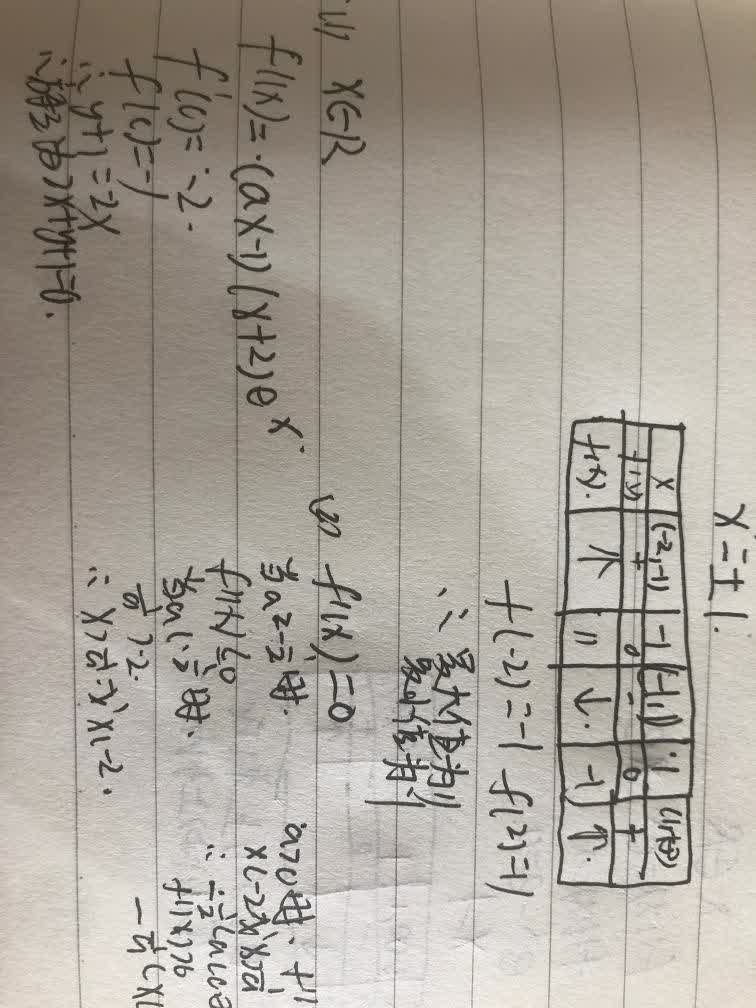 x=±1.
x (-2,-1) -1 (-1,1) 1
f'(x) + 0 - 0 +
f(x). ↑ 11 ↓. -1 ↑.
f(-2)=-1 f(2)=11
∴ 最大值为11
最小值为-1
(1) x∈R
f'(x)=(ax-1)(x+2)e^x.
f'(0)=-2.
f(0)=-1
∴ y+1=-2x
2x+y+1=0.
(2) f'(x)=0
当a=-1/2时.
f'(x)≤0
当a<-1/2时.
1/a>-2.
∴ x>1/a或x<-2.
a>0时.
x<-2或x>1/a
f'(x)>0